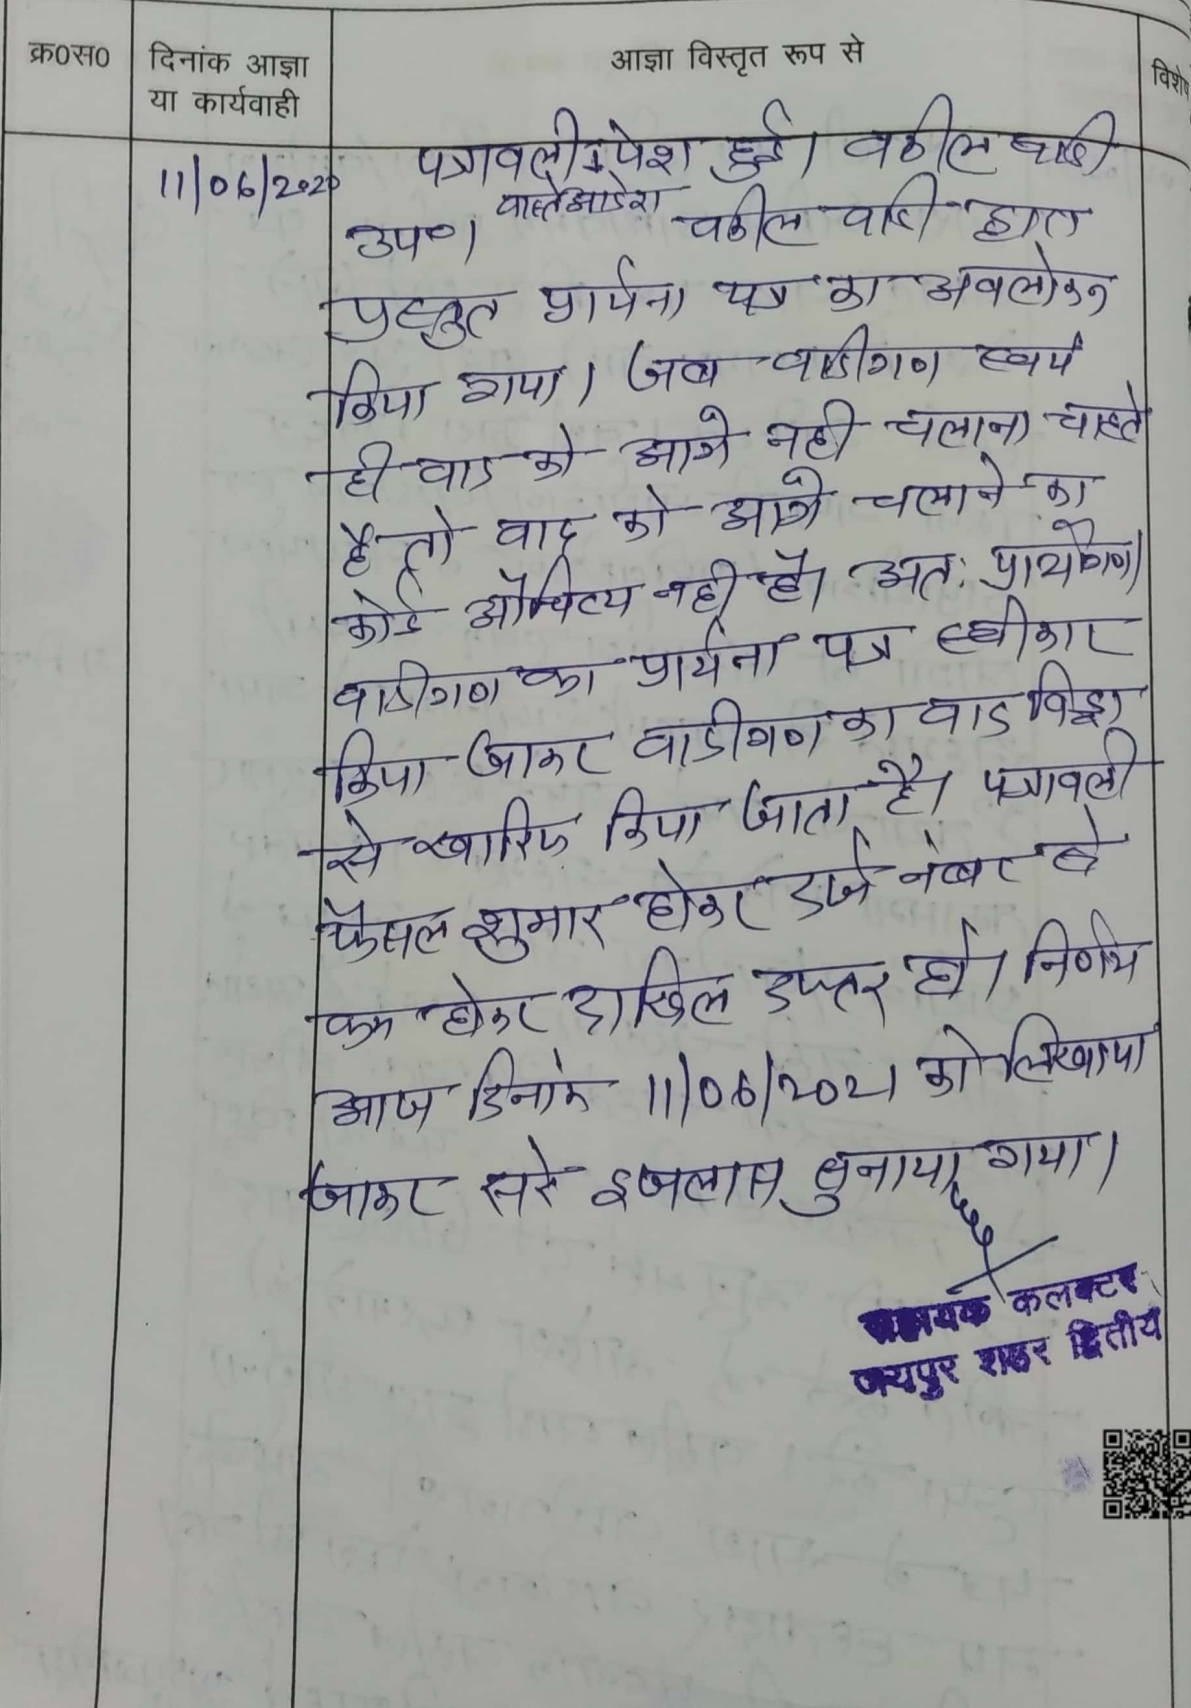 क्र०स०
दिनांक आज्ञा
या कार्यवाही
आज्ञा विस्तृत रूप से
विशे
11/06/2020
पत्रावली पेश हुई। वकील वादी
वास्ते आदेश
उप०। वकील वादी द्वारा
प्रस्तुत प्रार्थना पत्र का अवलोकन
किया गया। जब वादीगण स्वयं
ही वाद को आगे नही चलाना चाहते
है तो वाद को आगे चलाने का
कोई औचित्य नही है। अतः प्रार्थीगण/
वादीगण का प्रार्थना पत्र स्वीकार
किया जाकर वादीगण का वाद विड्रा
से खारिज किया जाता है। पत्रावली
फैसल शुमार होकर दर्ज नंबर से
कम होकर दाखिल दफ्तर हो। निर्णय
आज दिनांक 11/06/2021 को लिखाया
जाकर सरे इजलास सुनाया गया।
सहायक कलक्टर
जयपुर शहर द्वितीय